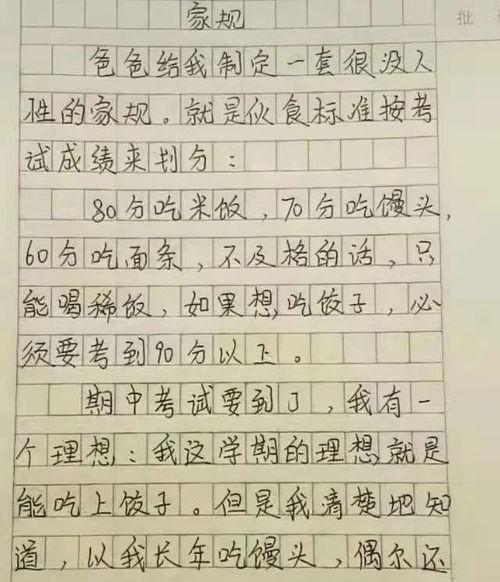 家规
批
爸爸给我制定一套很没人
性的家规。就是伙食标准按考
试成绩来划分：
80分吃米饭，70分吃馒头，
60分吃面条，不及格的话，只
能喝稀饭，如果想吃饺子，必
须要考到90分以上。
期中考试要到了，我有一
个理想：我这学期的理想就是
能吃上饺子。但是我清楚地知
道，以我长年吃馒头，偶尔还